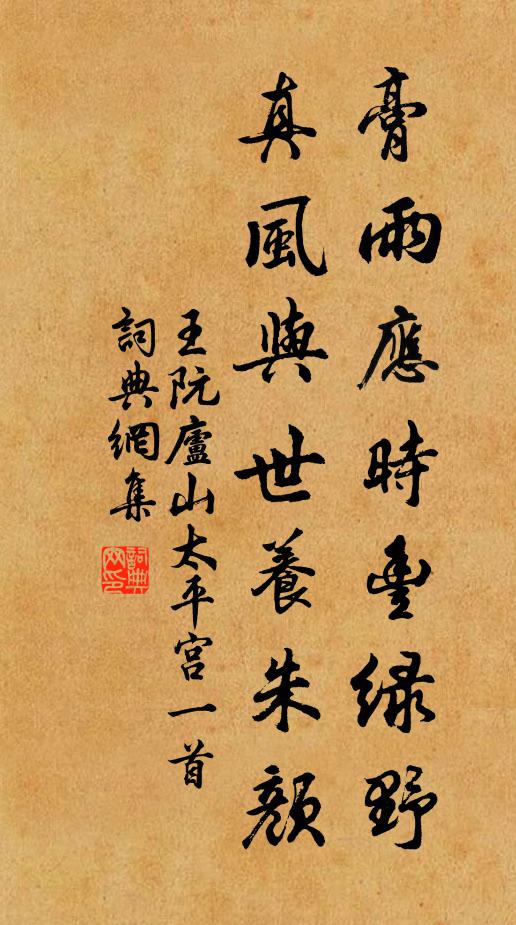 膏雨應時豐綠野
真風與世養朱顏
王阮廬山太平宮一首
詞典網集
詞典網印